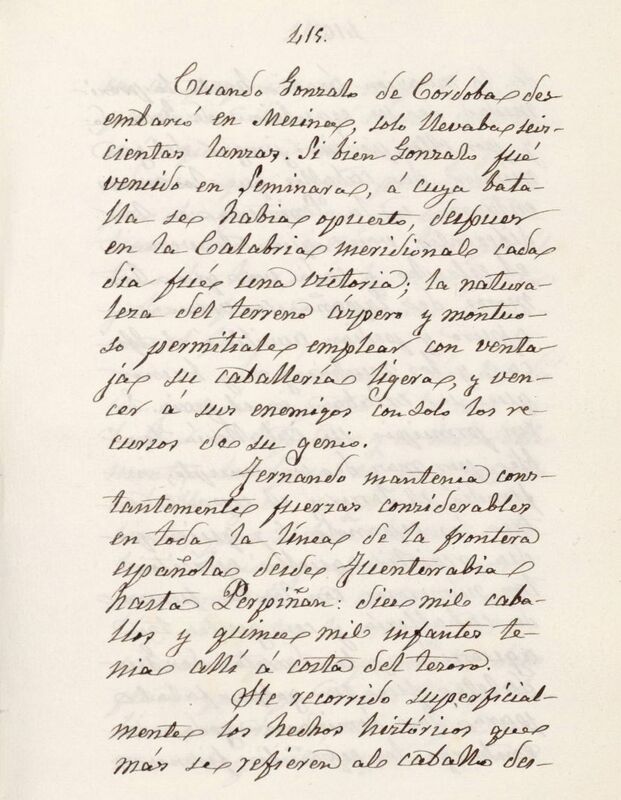 415.
Cuando Gonzalo de Córdoba des
embarcó en Mesina, solo llevaba seis-
cientas lanzas. Si bien Gonzalo fué
vencido en Seminara, á cuya bata-
lla se habia opuesto, despues
en la Calabria meridional cada
dia fué una victoria; la natura-
leza del terreno áspero y montuo-
so permitiale emplear con venta
já su caballería ligera, y ven-
cer á sus enemigos con solo los re-
cursos de su genio.
Fernando mantenia cons-
tantemente fuerzas considerables
en toda la línea de la frontera
española desde Fuenterrabia
hasta Perpiñan: diez mil caba-
llos y quince mil infantes te-
nia allí á costa del tesoro.
He recorrido superficial-
mente los hechos históricos que
más se refieren al caballo des-